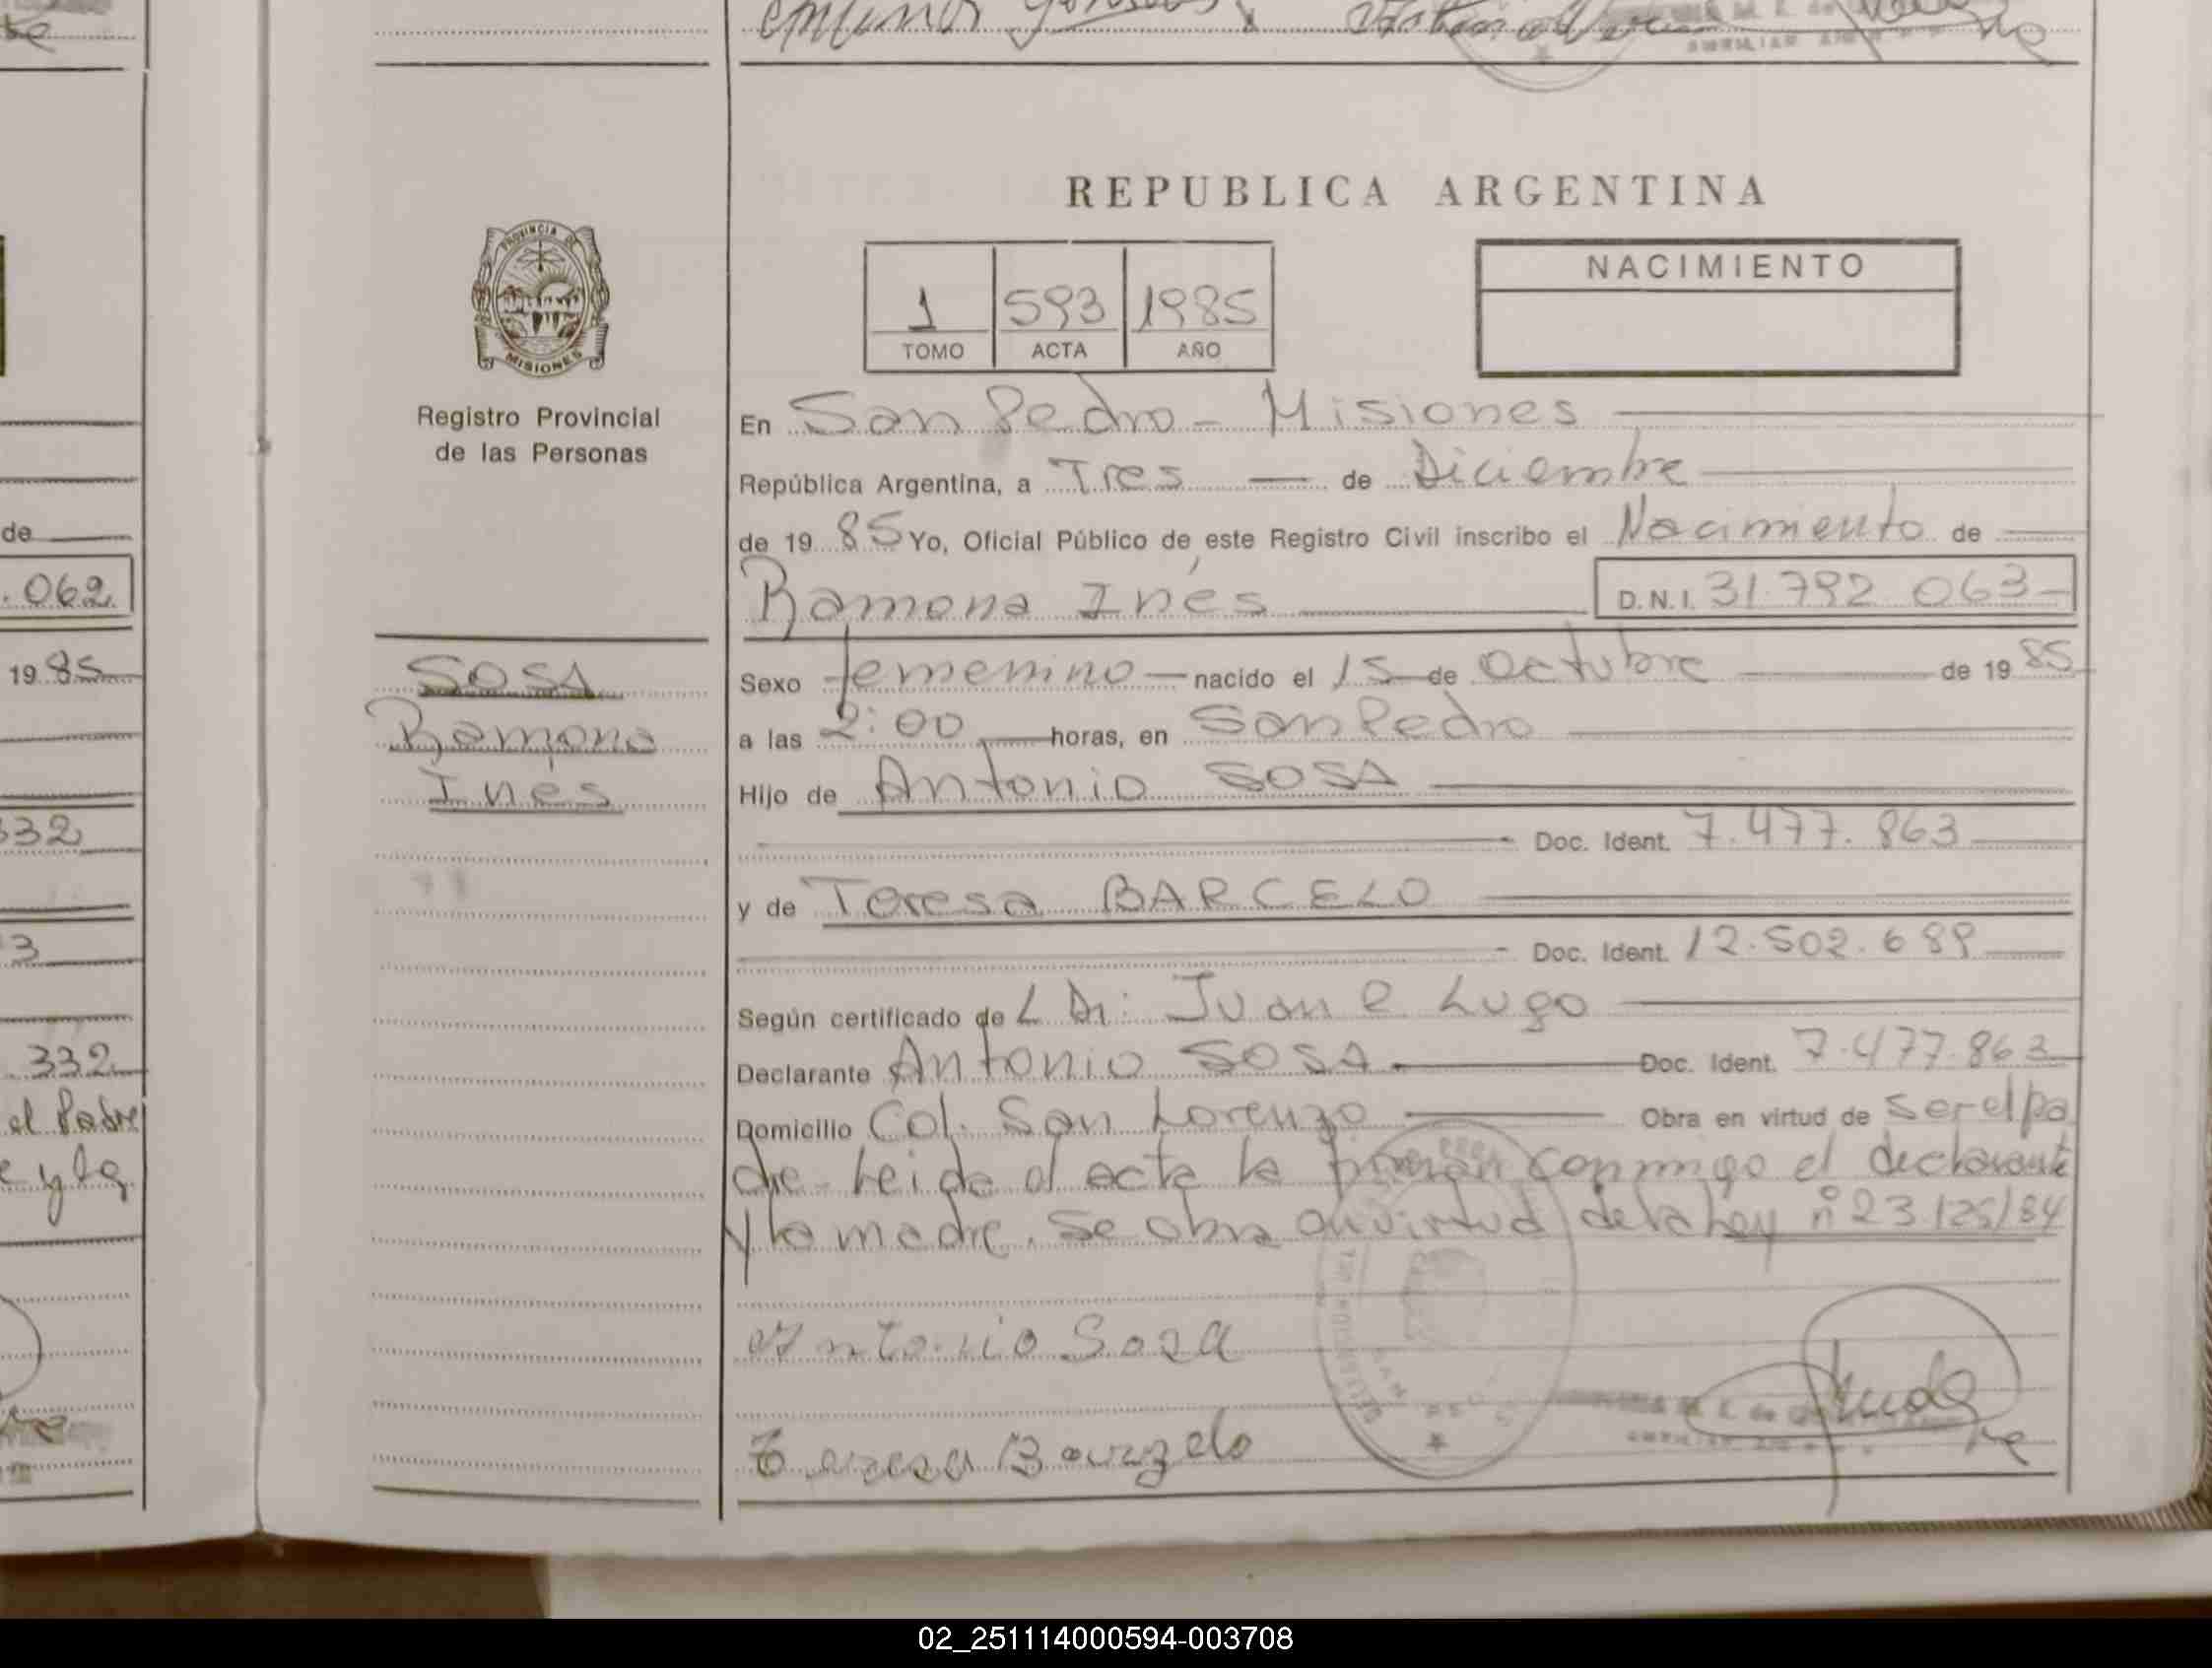 REPUBLICA ARGENTINA
PROVINCIA DE
MISIONES
Registro Provincial
de las Personas
1 593 1985
TOMO ACTA AÑO
NACIMIENTO
En San Pedro - Misiones
República Argentina, a Tres de Diciembre
de 1985 Yo, Oficial Público de este Registro Civil inscribo el Nacimiento de
Ramona Inés D.N.I. 31.792 063
SOSA
Ramona
Inés
Sexo femenino nacido el 15 de Octubre de 1985
a las 2:00 horas, en San Pedro
Hijo de Antonio SOSA
Doc. Ident. 7.477.863
y de Teresa BARCELO
Doc. Ident. 12.502.689
Según certificado de L Dr: Juan C Lugo
Declarante Antonio SOSA Doc. Ident. 7.477.863
Domicilio Col. San Lorenzo Obra en virtud de ser el pa
dre - Leida el acta la firman conmigo el declarante
y la madre. Se obra en virtud de la Ley nº 23.125/84
Antonio Sosa
Teresa Barzelo
de
.062
1985
332
3
332
el Padre
e y la
02_251114000594-003708